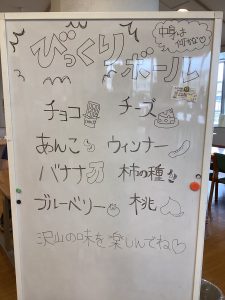 びっくり
ボール
中身は
何かな
チョコ チーズ
あんこ ウィンナー
バナナ 柿の種
ブルーベリー 桃
沢山の味を楽しんでね♡